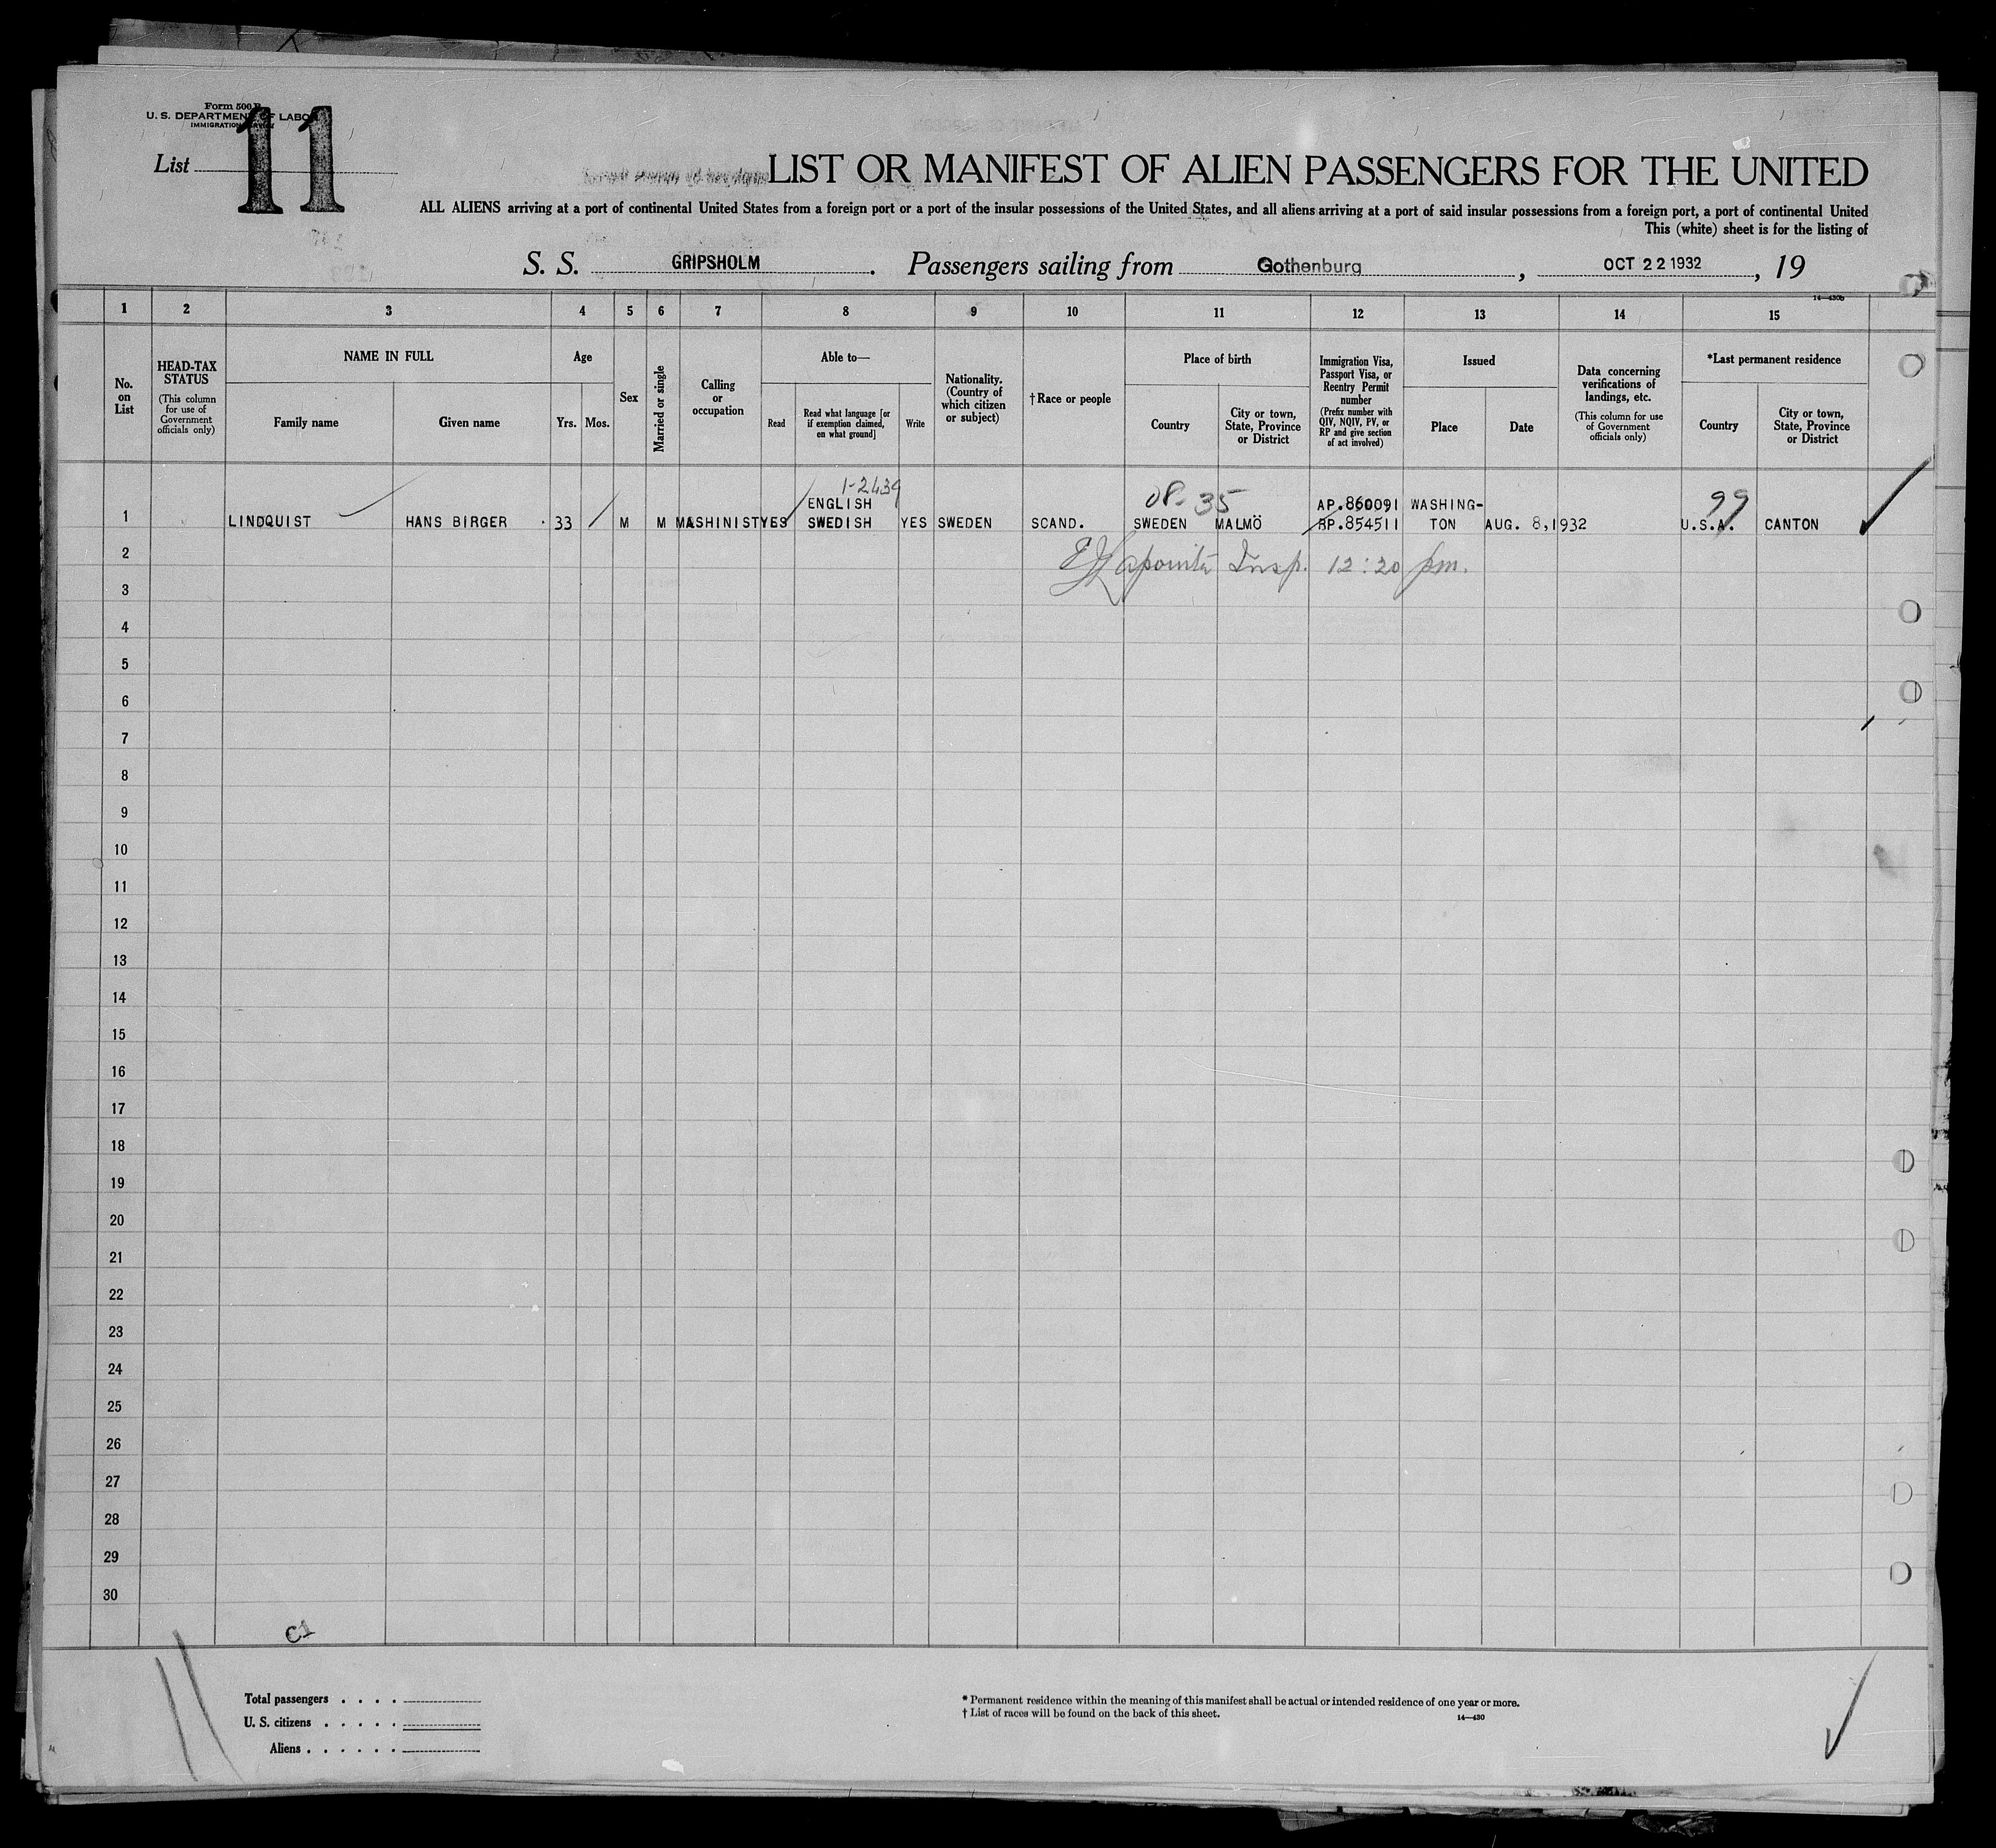 Form 500 B
U. S. DEPARTMENT OF LABOR
IMMIGRATION SERVICE
List 11
LIST OR MANIFEST OF ALIEN PASSENGERS FOR THE UNITED
ALL ALIENS arriving at a port of continental United States from a foreign port or a port of the insular possessions of the United States, and all aliens arriving at a port of said insular possessions from a foreign port, a port of continental United
This (white) sheet is for the listing of
S. S. GRIPSHOLM. Passengers sailing from Gothenburg, OCT 22 1932, 19
14—430b
1 2 3 4 5 6 7 8 9 10 11 12 13 14 15
No. on List
HEAD-TAX STATUS
(This column for use of Government officials only)
NAME IN FULL
Family name
Given name
Age
Yrs.
Mos.
Sex
Married or single
Calling or occupation
Able to—
Read
Read what language [or if exemption claimed, on what ground]
Write
Nationality. (Country of which citizen or subject)
†Race or people
Place of birth
Country
City or town, State, Province or District
Immigration Visa, Passport Visa, or Reentry Permit number
(Prefix number with QIV, NQIV, PV, or RP and give section of act involved)
Issued
Place
Date
Data concerning verifications of landings, etc.
(This column for use of Government officials only)
*Last permanent residence
Country
City or town, State, Province or District
1-2439
08-35
99
ENGLISH AP.860091 WASHING-
1 LINDQUIST HANS BIRGER 33 M M MASHINIST YES SWEDISH YES SWEDEN SCAND. SWEDEN MALMÖ RP.854511 TON AUG. 8,1932 U.S.A. CANTON
2 Insp. 12:20 pm.
3
4
5
6
7
8
9
10
11
12
13
14
15
16
17
18
19
20
21
22
23
24
25
26
27
28
29
30
Total passengers . . . .
U. S. citizens . . . . .
Aliens . . . . . .
* Permanent residence within the meaning of this manifest shall be actual or intended residence of one year or more.
† List of races will be found on the back of this sheet.
14—430